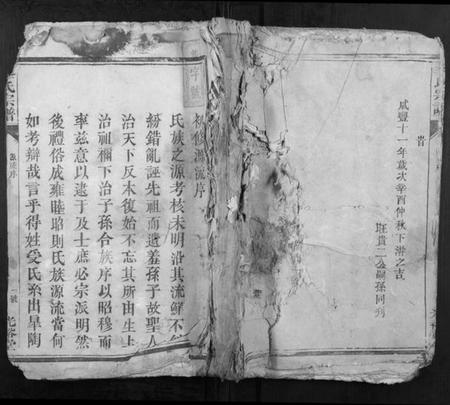 咸豐十一年歲次辛酉仲秋下澣之吉
旺貴二公嗣孫同刊
源流序
氏族之源考核未明沿其流鮮不
紛錯亂誣先祖而遺羞孫子故聖人
治天下反本復始不忘其所由生上
治祖禰下治子孫合族序以昭穆而
率茲意以逮于及士庶必宗派明然
後禮俗成雍睦昭則氏族源流當何
如考辯哉言乎得姓受氏系出皋陶
氏宗譜
源流序